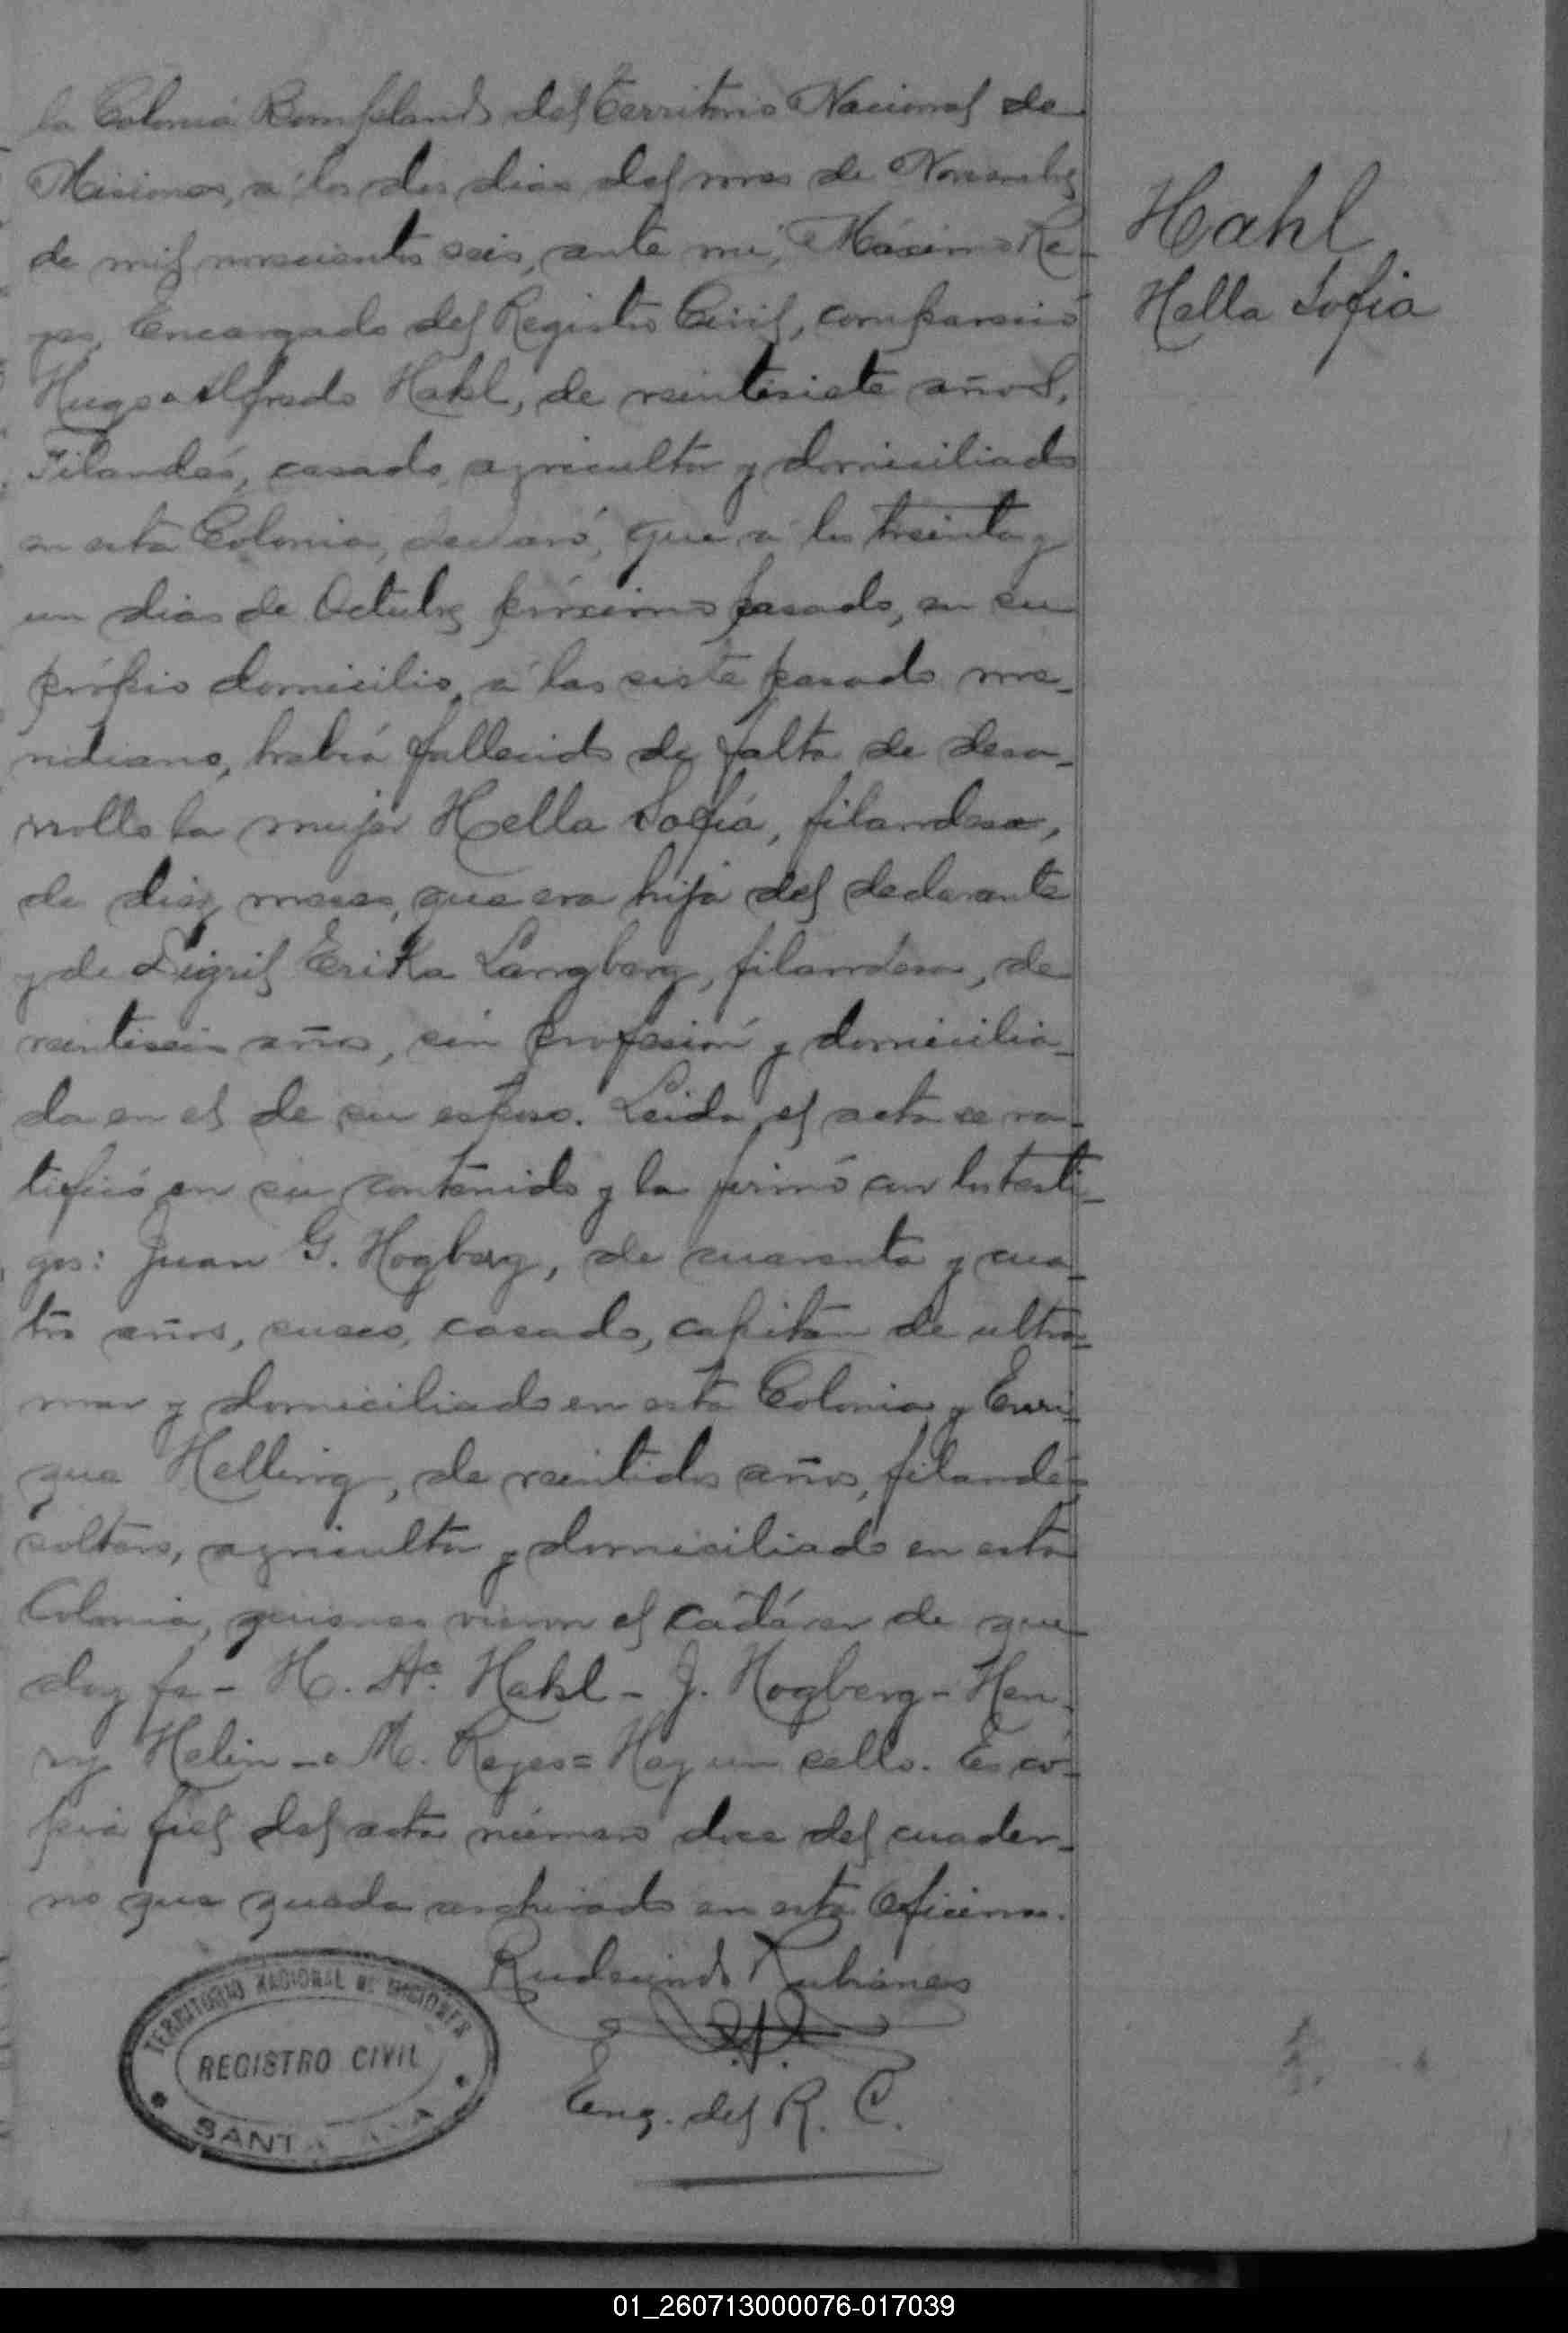 la Colonia Bompland del Territorio Nacional de
Misiones, a' los dos dias del mes de Noviembre
de mil novecientos seis, ante mi, Máximo Re-
yes, Encargado del Registro Civil, compareció
Hugo Alfredo Hahl, de veintisiete años,
Filandés, casado, agricultor y domiciliado
en esta Colonia, declaró, que a' los treinta y
un dias de Octubre próximo pasado, en su
própio domicilio, a' las siete pasado me-
ridiano, habia fallecido de falta de desa-
rrollo la mujer Hella Sofia, filandesa,
de diez meses, que era hija del declarante
y de Sigril Erika Langberg, filandesa, de
veintiseis años, sin profesión y domicilia-
da en el de su esposo. Leida el acta se ra-
tificó en su contenido y la firmó con los testi-
gos: Juan G. Hogberg, de cuarenta y cua-
tro años, sueco, casado, capitan de ultra-
mar y domiciliado en esta Colonia y Enri-
que Helling, de veintidos años, filandés,
soltero, agricultor y domiciliado en esta
Colonia, quienes vieron el cadáver de que
doy fe - H. A. Hahl - J. Hogberg - Hen-
ry Helin - M. Reyes = Hay un sello. Es có-
pia fiel del acta número doce del cuader-
no que queda archivado en esta Oficina.
Rudecindo Rubianes
Eng. del R. C.
TERRITORIO NACIONAL DE MISIONES
REGISTRO CIVIL
SANTA ANA
Hahl
Hella Sofia
01_260713000076-017039